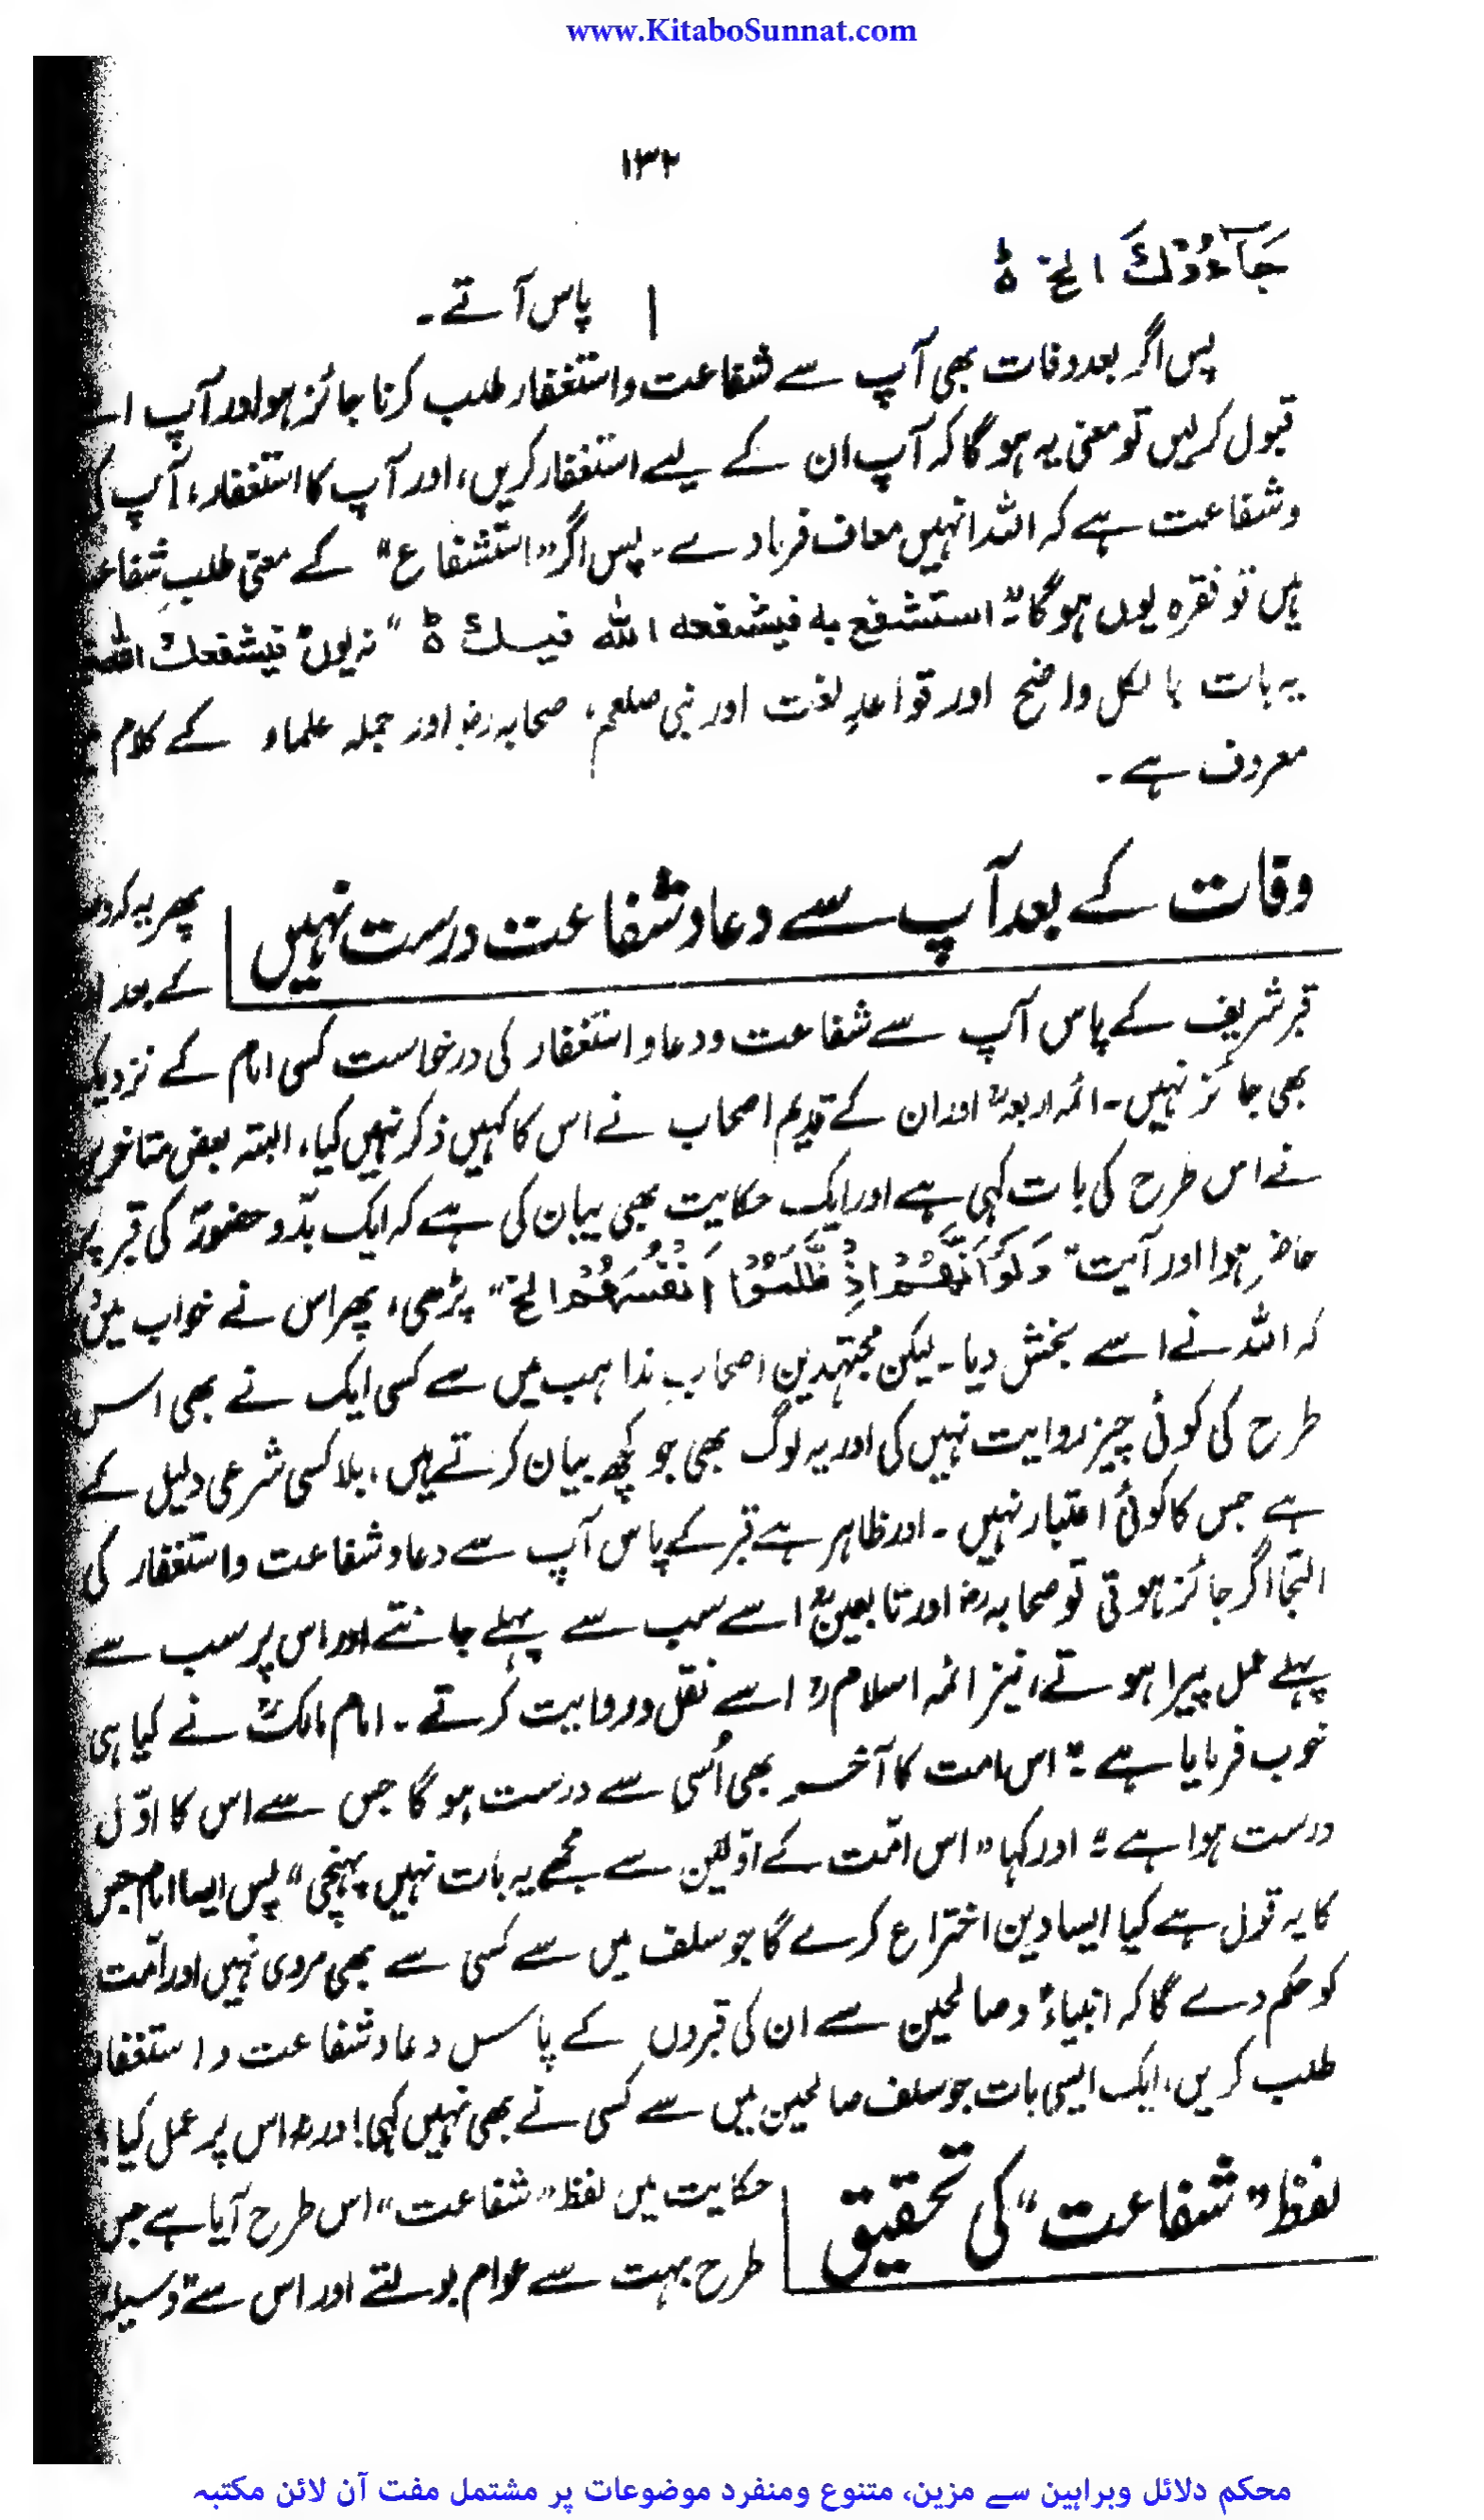 www.KitaboSunnat.com
۱۳۲
جَآءُوْكَ الخ ہ
پاس آتے۔
پس اگر بعد وفات بھی آپ سے شفاعت واستغفار طلب کرنا جائز ہو اور آپ
قبول کرلیں تو معنی یہ ہوگا کہ آپ ان کے لیے استغفار کریں، اور آپ کا استغفار، آپ
وشفاعت ہے کہ اللہ انہیں معاف فرمادے۔ پس اگر "استشفاع" کے معنی طلبِ
ہیں تو فقرہ یوں ہوگا: "استشفع به فيشفعه الله فيك ہ" نہ یوں "فيشفعك الله
یہ بات بالکل واضح اور قواعدِ لغت اور نبی صلعم، صحابہ رضہ اور جملہ علماء کے کلام
معروف ہے۔
وفات کے بعد آپ سے دعا و شفاعت درست نہیں
پھر یہ کہ
کے بعد
قبر شریف کے پاس آپ سے شفاعت و دعا و استغفار کی درخواست کسی امام کے نزدیک
بھی جائز نہیں۔ ائمہ اربعہؒ اور ان کے قدیم اصحاب نے اس کا کہیں ذکر نہیں کیا، البتہ بعض
نے اس طرح کی بات کہی ہے اور ایک حکایت بھی بیان کی ہے کہ ایک بدّو حضورؐ کی قبر پر
حاضر ہوا اور آیت "وَلَوْ اَنَّهُمْ اِذْ ظَّلَمُوْا اَنْفُسَهُمْ الخ" پڑھی، پھر اس نے خواب میں
کہ اللہ نے اسے بخش دیا۔ لیکن مجتہدین اصحابِ مذاہب میں سے کسی ایک نے بھی اس
طرح کی کوئی چیز روایت نہیں کی اور یہ لوگ بھی جو کچھ بیان کرتے ہیں، بلا کسی شرعی دلیل کے
ہے جس کا کوئی اعتبار نہیں۔ اور ظاہر ہے قبر کے پاس آپ سے دعا و شفاعت و استغفار کی
التجا اگر جائز ہوتی تو صحابہ رضہ اور تابعینؒ اسے سب سے پہلے جانتے اور اس پر سب سے
پہلے عمل پیرا ہوتے، نیز ائمہ اسلامؒ اسے نقل و روایت کرتے۔ امام مالکؒ نے کیا ہی
خوب فرمایا ہے: "اس امت کا آخر بھی اُسی سے درست ہوگا جس سے اس کا اوّل
درست ہوا ہے" اور کہا "اس امّت کے اوّلین سے مجھے یہ بات نہیں پہنچی" پس ایسا امام جس
کا یہ قول ہے کیا ایسا دین اختراع کرے گا جو سلف میں سے کسی سے بھی مروی نہیں اور امّت
کو حکم دے گا کہ انبیاءؑ و صالحین سے ان کی قبروں کے پاس دعا و شفاعت و استغفار
طلب کریں، ایک ایسی بات جو سلف صالحین میں سے کسی نے بھی نہیں کہی! اور نہ اس پر عمل کیا
لفظ "شفاعت" کی تحقیق
حکایت میں لفظ "شفاعت" اس طرح آیا ہے جس
طرح بہت سے عوام بولتے اور اس سے توسیلہ
محکم دلائل وبراہین سے مزین، متنوع ومنفرد موضوعات پر مشتمل مفت آن لائن مکتبہ